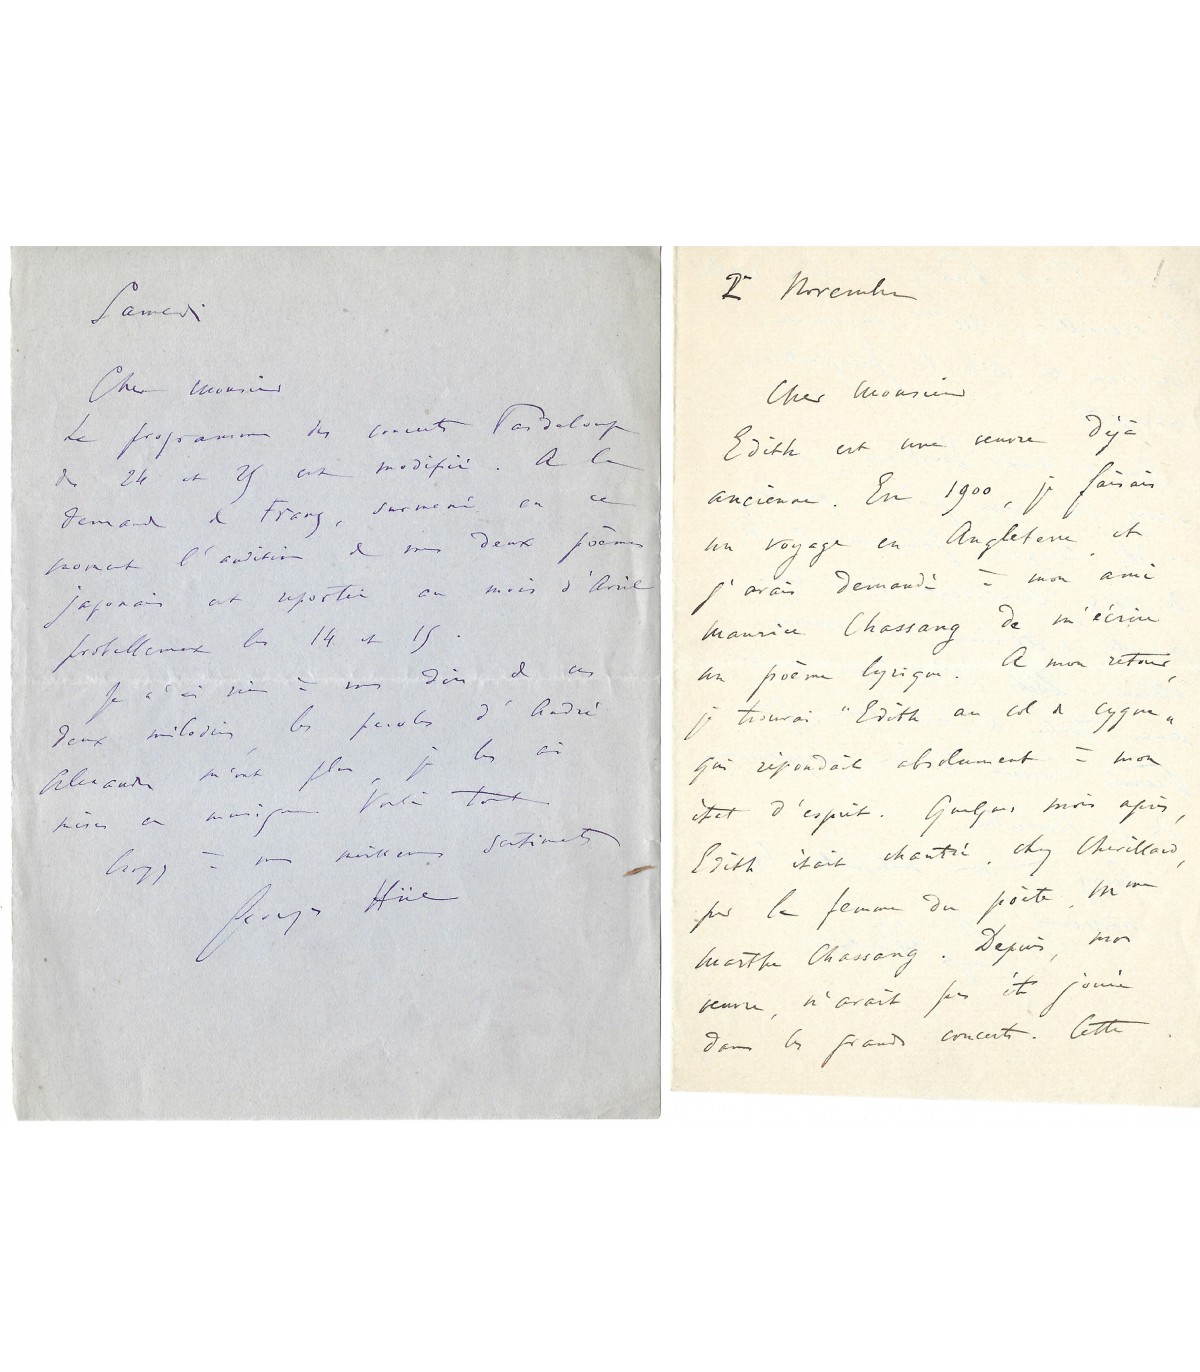 Samedi
Cher Monsieur
Le programme des concerts Pasdeloup
du 24 et 25 est modifié. A la
demande de Franz, surmené en ce
moment l'audition de mes deux poèmes
japonais est reportée au mois d'Avril
probablement les 14 et 15.
Je n'ai rien à vous dire de ces
deux mélodies, les paroles d'André
Alexandre m'ont plu, je les ai
mises en musique Voilà tout
Croyez à mes meilleurs sentiments
Georges Hüe
2 Novembre
Cher Monsieur
Edith est une œuvre déjà
ancienne. En 1900, je faisais
un voyage en Angleterre et
j'avais demandé à mon ami
Maurice Chassang de m'écrire
un poème lyrique. A mon retour,
je trouvai "Edith au col de cygne"
qui répondait absolument à mon
état d'esprit. Quelques mois après,
Edith était chantée, chez Chevillard,
par la femme du poète, Mme
Marthe Chassang. Depuis, mon
œuvre, n'avait pas été jouée
dans les grands concerts. Cette